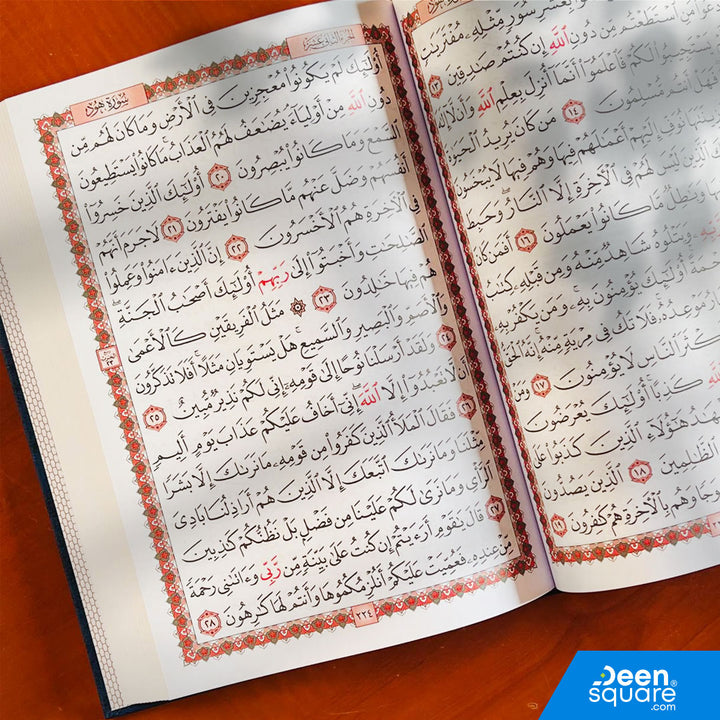 بِعَشْرِ سُوَرٍ مِّثْلِهِۦ مُفْتَرَيَٰتٍ
ٱسْتَطَعْتُم مِّن دُونِ ٱللَّهِ إِن كُنتُمْ صَٰدِقِينَ ١٣
يَسْتَجِيبُوا۟ لَكُمْ فَٱعْلَمُوٓا۟ أَنَّمَآ أُنزِلَ بِعِلْمِ ٱللَّهِ وَأَن لَّآ
فَهَلْ أَنتُم مُّسْلِمُونَ ١٤ مَن كَانَ يُرِيدُ
نُوَفِّ إِلَيْهِمْ أَعْمَٰلَهُمْ فِيهَا وَهُمْ فِيهَا لَا يُبْخَسُونَ
ٱلَّذِينَ لَيْسَ لَهُمْ فِى ٱلْءَاخِرَةِ إِلَّا ٱلنَّارُ وَحَبِطَ
وَبَٰطِلٌ مَّا كَانُوا۟ يَعْمَلُونَ ١٦ أَفَمَن كَانَ
وَيَتْلُوهُ شَاهِدٌ مِّنْهُ وَمِن قَبْلِهِۦ كِتَٰبُ
أُو۟لَٰٓئِكَ يُؤْمِنُونَ بِهِۦ وَمَن يَكْفُرْ بِهِۦ
مَوْعِدُهُۥ فَلَا تَكُ فِى مِرْيَةٍ مِّنْهُ إِنَّهُ ٱلْحَقُّ
ٱلنَّاسِ لَا يُؤْمِنُونَ ١٧ وَمَنْ
ٱللَّهِ كَذِبًا أُو۟لَٰٓئِكَ يُعْرَضُونَ
هَٰٓؤُلَآءِ ٱلَّذِينَ كَذَبُوا۟ عَلَىٰ
ٱلظَّٰلِمِينَ ١٨ ٱلَّذِينَ يَصُدُّونَ
وَهُم بِٱلْءَاخِرَةِ هُمْ كَٰفِرُونَ ١٩
الجزء الثاني عشر
سورة هود
أُو۟لَٰٓئِكَ لَمْ يَكُونُوا۟ مُعْجِزِينَ فِى ٱلْأَرْضِ وَمَا كَانَ لَهُم مِّن
دُونِ ٱللَّهِ مِنْ أَوْلِيَآءَ يُضَٰعَفُ لَهُمُ ٱلْعَذَابُ مَا كَانُوا۟ يَسْتَطِيعُونَ
ٱلسَّمْعَ وَمَا كَانُوا۟ يُبْصِرُونَ ٢٠ أُو۟لَٰٓئِكَ ٱلَّذِينَ خَسِرُوٓا۟
أَنفُسَهُمْ وَضَلَّ عَنْهُم مَّا كَانُوا۟ يَفْتَرُونَ ٢١ لَا جَرَمَ أَنَّهُمْ
فِى ٱلْءَاخِرَةِ هُمُ ٱلْأَخْسَرُونَ ٢٢ إِنَّ ٱلَّذِينَ ءَامَنُوا۟ وَعَمِلُوا۟
ٱلصَّٰلِحَٰتِ وَأَخْبَتُوٓا۟ إِلَىٰ رَبِّهِمْ أُو۟لَٰٓئِكَ أَصْحَٰبُ ٱلْجَنَّةِ
هُمْ فِيهَا خَٰلِدُونَ ٢٣ ۞ مَثَلُ ٱلْفَرِيقَيْنِ كَٱلْأَعْمَىٰ
وَٱلْأَصَمِّ وَٱلْبَصِيرِ وَٱلسَّمِيعِ هَلْ يَسْتَوِيَانِ مَثَلًا أَفَلَا تَذَكَّرُونَ
٢٤ وَلَقَدْ أَرْسَلْنَا نُوحًا إِلَىٰ قَوْمِهِۦٓ إِنِّى لَكُمْ نَذِيرٌ مُّبِينٌ ٢٥
أَن لَّا تَعْبُدُوٓا۟ إِلَّا ٱللَّهَ إِنِّىٓ أَخَافُ عَلَيْكُمْ عَذَابَ يَوْمٍ أَلِيمٍ
٢٦ فَقَالَ ٱلْمَلَأُ ٱلَّذِينَ كَفَرُوا۟ مِن قَوْمِهِۦ مَا نَرَىٰكَ إِلَّا بَشَرًا
مِّثْلَنَا وَمَا نَرَىٰكَ ٱتَّبَعَكَ إِلَّا ٱلَّذِينَ هُمْ أَرَاذِلُنَا بَادِىَ
ٱلرَّأْىِ وَمَا نَرَىٰ لَكُمْ عَلَيْنَا مِن فَضْلٍۭ بَلْ نَظُنُّكُمْ كَٰذِبِينَ
٢٧ قَالَ يَٰقَوْمِ أَرَءَيْتُمْ إِن كُنتُ عَلَىٰ بَيِّنَةٍ مِّن رَّبِّى وَءَاتَىٰنِى رَحْمَةً
مِّنْ عِندِهِۦ فَعُمِّيَتْ عَلَيْكُمْ أَنُلْزِمُكُمُوهَا وَأَنتُمْ لَهَا كَٰرِهُونَ ٢٨
٢٢٤
Deen
square®
.com